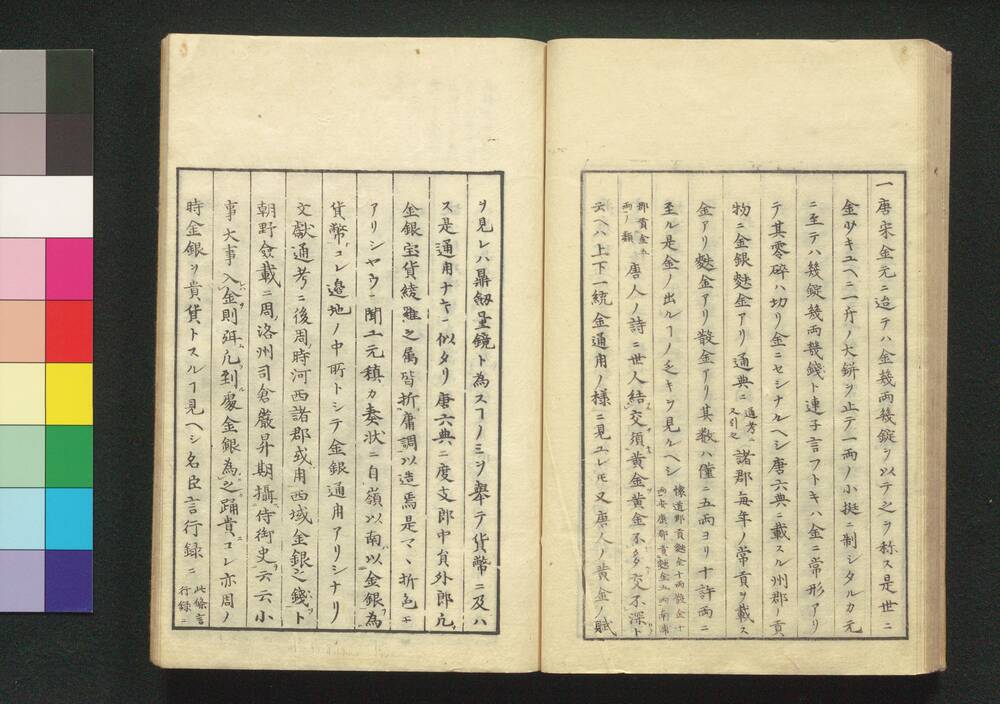 一唐宋金元ニ迨テハ金幾両幾錠ヲ以テ之ヲ称ス是世ニ
金少キユヘニ一斤ノ大餅ヲ止テ一両ノ小挺ニ制シタルカ元
ニ至テハ幾錠幾両幾錢ト連子言フトキハ金ニ常形アリ
テ其零碎ハ切リ金ニセシナルヘシ唐六典ニ載スル州郡ノ貢
物ニ金銀麩金アリ通典ニ通考ニ又引之諸郡毎年ノ常貢ヲ載ス
金アリ麩金アリ散金アリ其数ハ僅ニ五両ヨリ十許両ニ
至ル是金ノ出ルヿノ乏キヲ見ルヘシ懐道郡貢麩金十両散金十
郡貢金両ノ類唐人ノ詩ニ世人結交須黄金黄金不多交不深ト
云ヘハ上下一統金通用ノ様ニ見ユレモ又唐人ノ黄金ノ賦
ヲ見レハ鼎劔量鏡ト為スヿノミヲ舉テ貨幣ニ及ハ
ス是通用ナキニ似タリ唐六典ニ度支郎中貟外郎凢
金銀宝貨綾雖之属皆折庸調以造焉是マヽ折色モ
アリシヤウニ聞ユ元稹カ奏状ニ自嶺以南以金銀為
貨幣コレ邉地ノ中所トシテ金銀通用アリシナリ
文獻通考ニ後周時河西諸郡或用西域金銀之錢ト
朝野僉載ニ周洛州司倉嚴昇期攝侍御史云云小
事大事入金則弭凢到處金銀為之踊貴コレ亦周ノ
時金銀ヲ貴貨トスルヿ見ヘシ名臣言行録ニ此條言行録ニ